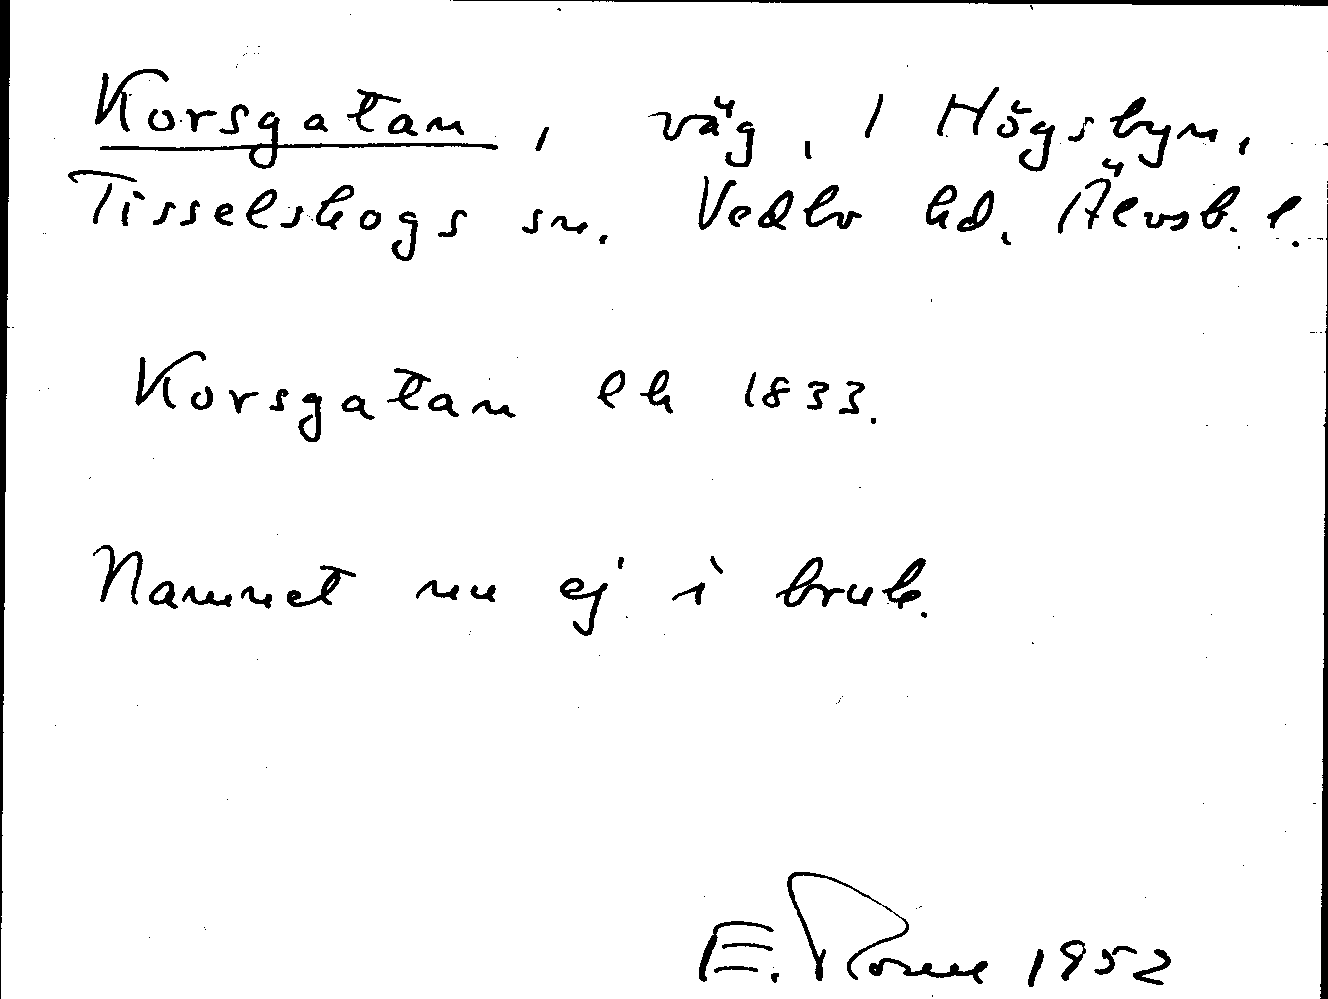 Korsgatan, väg, 1 Högsbyn,
Tisselskogs sn. Vedbo hd. Älvsb. l.
Korsgatan lh 1833.
Namnet nu ej i bruk.
E. 1952